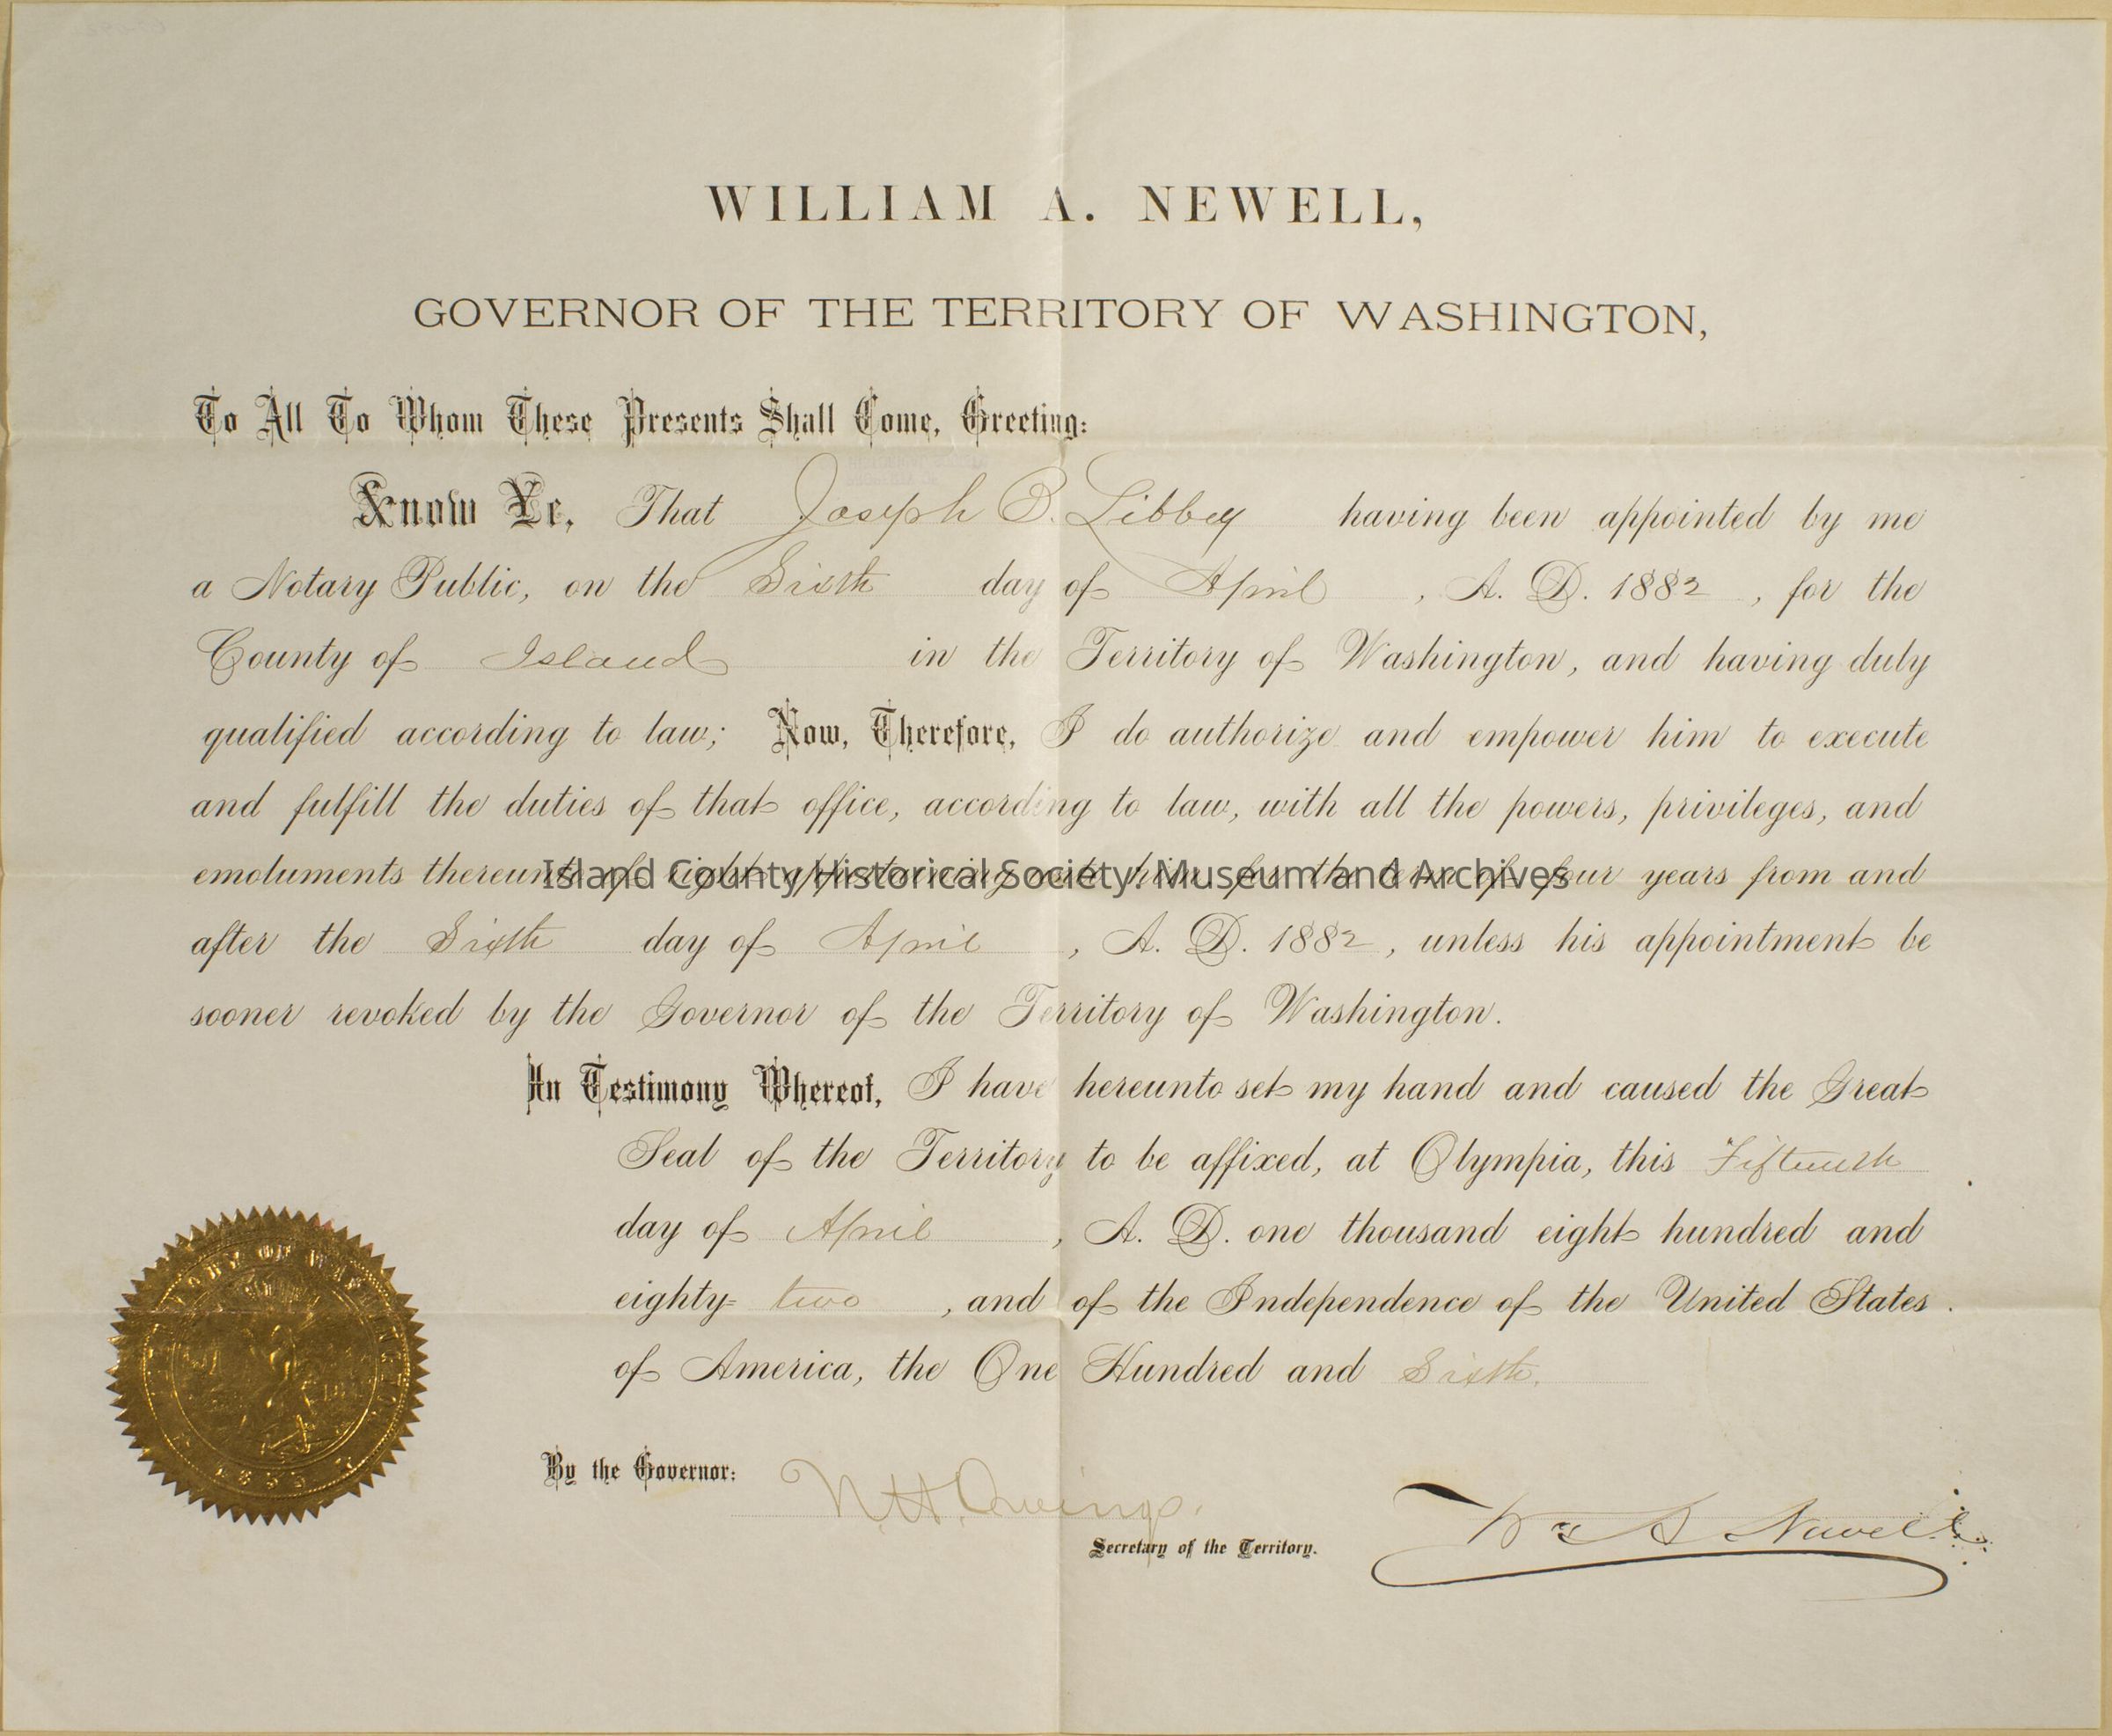 WILLIAM A. NEWELL,
GOVERNOR OF THE TERRITORY OF WASHINGTON,
To All To Whom These Presents Shall Come, Greeting:
Know Ye, That Joseph B. Libbey having been appointed by me
a Notary Public, on the Sixth day of April, A. D. 1882, for the
County of Island in the Territory of Washington, and having duly
qualified according to law; Now, Therefore, I do authorize and empower him to execute
and fulfill the duties of that office, according to law, with all the powers, privileges, and
emoluments thereunto of right appertaining unto him, for the term of four years from and
Island County Historical Society, Museum and Archives
after the Sixth day of April, A. D. 1882, unless his appointment be
sooner revoked by the Governor of the Territory of Washington.
In Testimony Whereof, I have hereunto set my hand and caused the Great
Seal of the Territory to be affixed, at Olympia, this Fifteenth
day of April, A. D. one thousand eight hundred and
eighty=two, and of the Independence of the United States
of America, the One Hundred and Sixth.
By the Governor: N. H. Owings.
Secretary of the Territory.
Wm A Newell